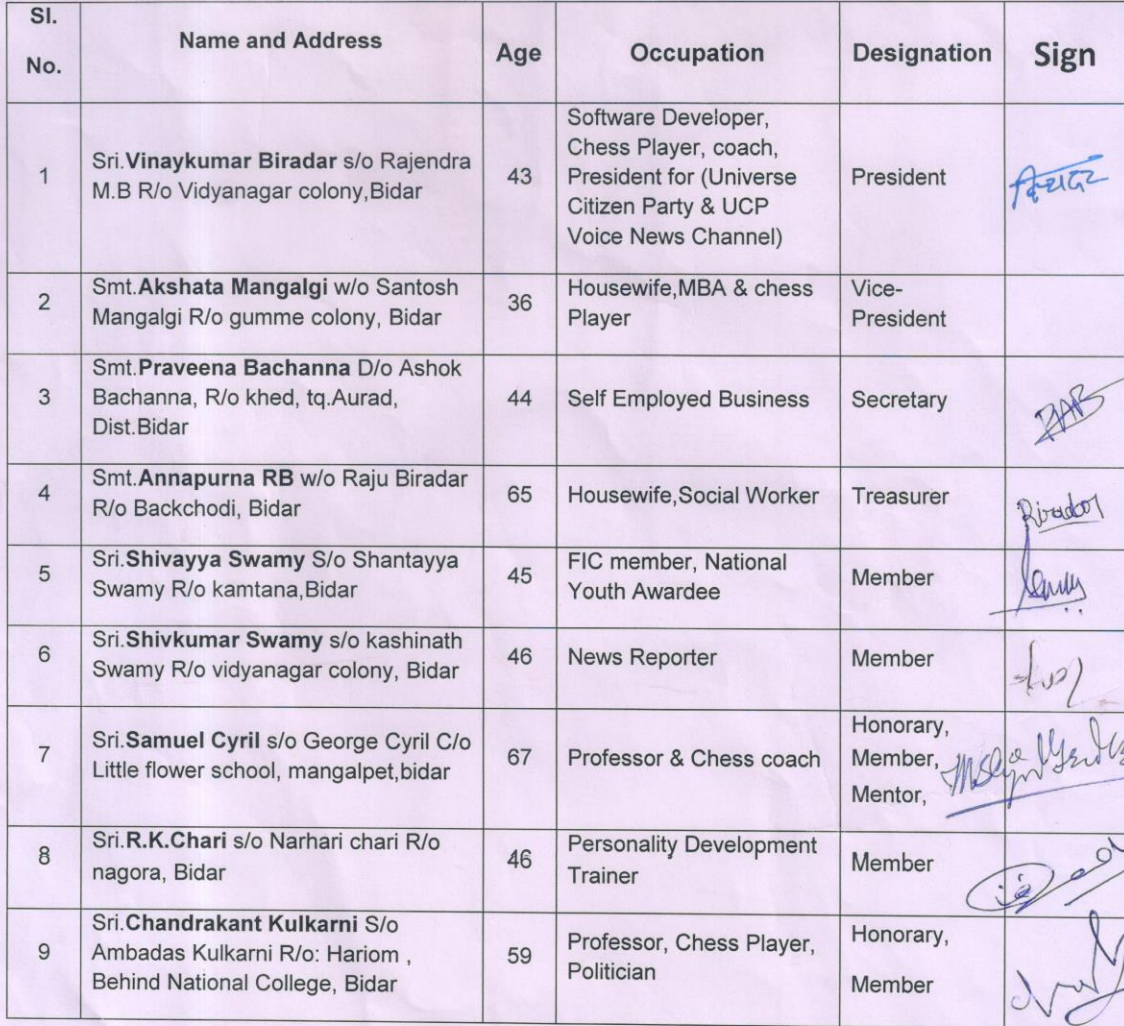 Sl.
No.
Name and Address
Age
Occupation
Designation
Sign
1
Sri.Vinaykumar Biradar s/o Rajendra
M.B R/o Vidyanagar colony,Bidar
43
Software Developer,
Chess Player, coach,
President for (Universe
Citizen Party & UCP
Voice News Channel)
President
2
Smt.Akshata Mangalgi w/o Santosh
Mangalgi R/o gumme colony, Bidar
36
Housewife,MBA & chess
Player
Vice-
President
3
Smt.Praveena Bachanna D/o Ashok
Bachanna, R/o khed, tq.Aurad,
Dist.Bidar
44
Self Employed Business
Secretary
4
Smt.Annapurna RB w/o Raju Biradar
R/o Backchodi, Bidar
65
Housewife,Social Worker
Treasurer
5
Sri.Shivayya Swamy S/o Shantayya
Swamy R/o kamtana,Bidar
45
FIC member, National
Youth Awardee
Member
6
Sri.Shivkumar Swamy s/o kashinath
Swamy R/o vidyanagar colony, Bidar
46
News Reporter
Member
7
Sri.Samuel Cyril s/o George Cyril C/o
Little flower school, mangalpet,bidar
67
Professor & Chess coach
Honorary,
Member,
Mentor,
8
Sri.R.K.Chari s/o Narhari chari R/o
nagora, Bidar
46
Personality Development
Trainer
Member
9
Sri.Chandrakant Kulkarni S/o
Ambadas Kulkarni R/o: Hariom ,
Behind National College, Bidar
59
Professor, Chess Player,
Politician
Honorary,
Member